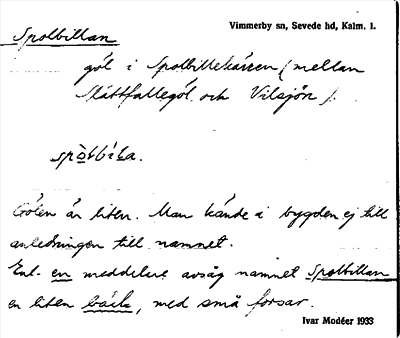 Vimmerby sn, Sevede hd, Kalm. l.
Spolbillan
göl i Spolbillekärren (mellan
Slåttfallegöl och Vilsjön).
Gölen är liten. Man kände i bygden ej till
anledningen till namnet.
Enl. en meddelare avsåg namnet Spolbillan
en liten bäck, med små forsar.
Ivar Modéer 1933